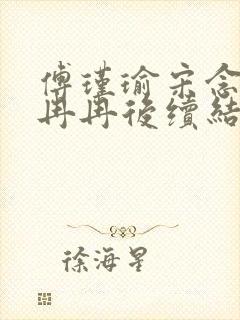 傅瑾瑜宋念
冉冉後續結
徐海星